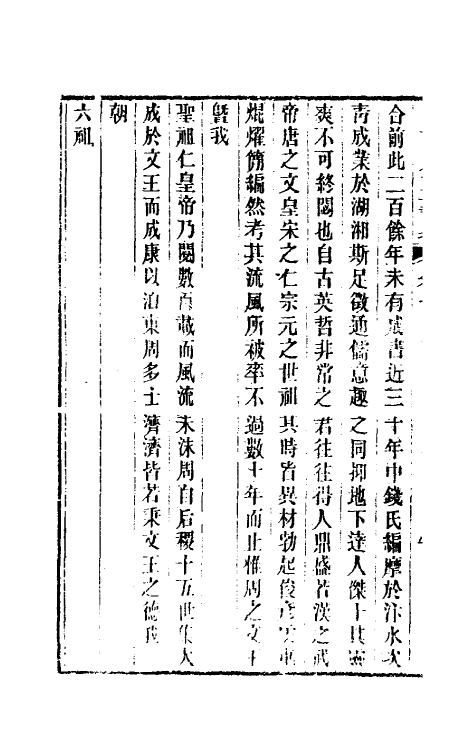 合前此二百餘年未有成書近三十年中錢氏編摩於汴水次
青成業於湖湘斯足徵通儒意趣之同抑地下達人傑士其靈
爽不可終閟也自古英哲非常之君往往得人鼎盛若漢之武
帝唐之文皇宋之仁宗元之世祖其時皆異材勃起俊彥雲屯
焜燿簡編然考其流風所被率不過數十年而止惟周之文王
曁我
聖祖仁皇帝乃閱數百載而風流未沬周自后稷十五世集大
成於文王而成康以洎東周多士濟濟皆若秉文王之德我
朝
六祖